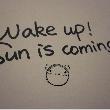 Wake up!
Sun is coming